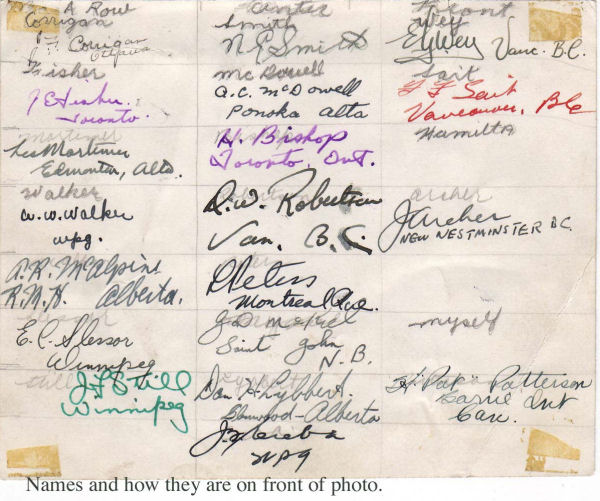 A Row
Corrigan
Corrigan
Ottawa
Fisher
J E Fisher.
Toronto.
Mortimer
Les Mortimer
Edmonton, Alta.
Walker
W. W. Walker
wpg.
A. R. McAlpine
R.M.H. Alberta.
E. C. Slessor
Winnipeg
J F Still
Winnipeg
Center
Smith
N. E. Smith
McDowell
Q.C. McDowell
Ponoka Alta
H. Bishop
Toronto, Ont.
D. W. Robertson
Van. B.C.
Peters
Montreal Que.
Saint John
N.B.
Dan H Lybbert.
Glenwood-Alberta
WPG
Front
Wey
E J Wey Vanc. B.C.
Sait
F F Sait
Vancouver, B.C.
Hamilta
archer
J Archer
NEW WESTMINSTER B.C.
myself
H "Pat" Patterson
Barrie Ont
Can.
Names and how they are on front of photo.